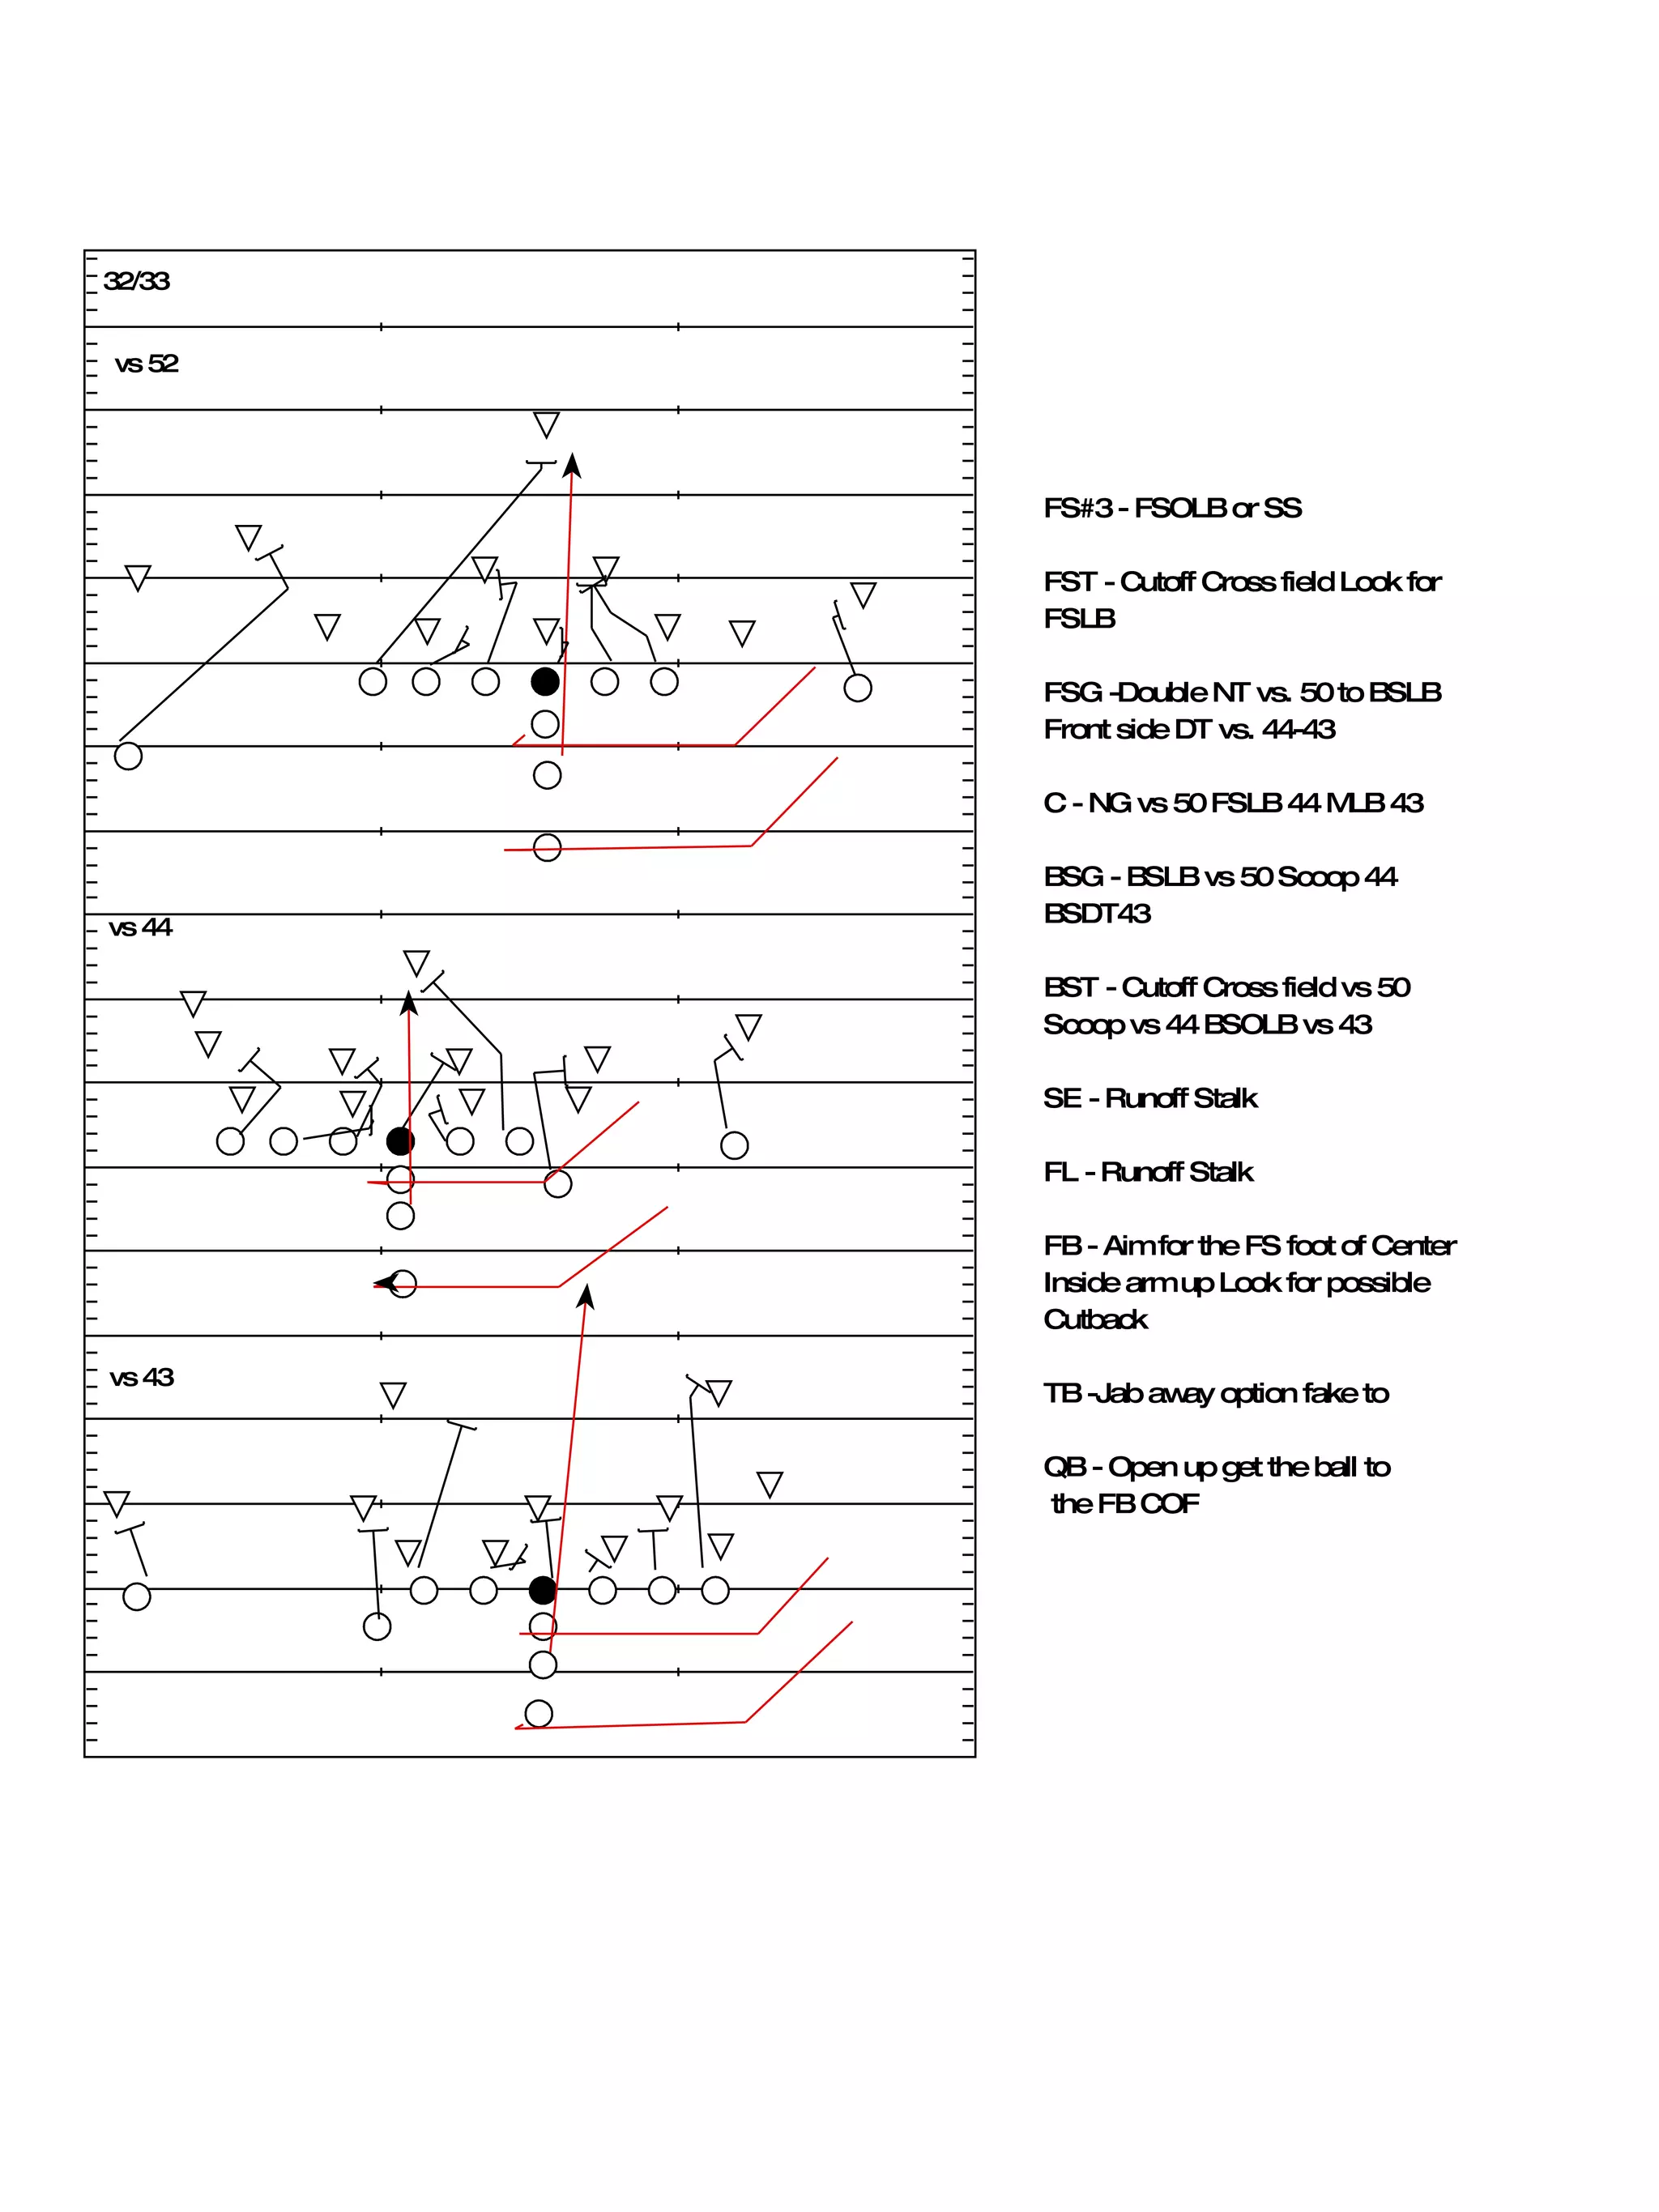 32/33
vs 52
vs 44
vs 43
FS#3 - FSOLB or SS
FST - Cutoff Cross field Look for
FSLB
FSG -Double NT vs. 50 to BSLB
Front side DT vs. 44-43
C - NG vs 50 FSLB 44 MLB 43
BSG - BSLB vs 50 Scoop 44
BSDT43
BST - Cutoff Cross field vs 50
Scoop vs 44 BSOLB vs 43
SE - Runoff Stalk
FL - Runoff Stalk
FB - Aim for the FS foot of Center
Inside arm up Look for possible
Cutback
TB -Jab away option fake to
QB - Open up get the ball to
the FB COF